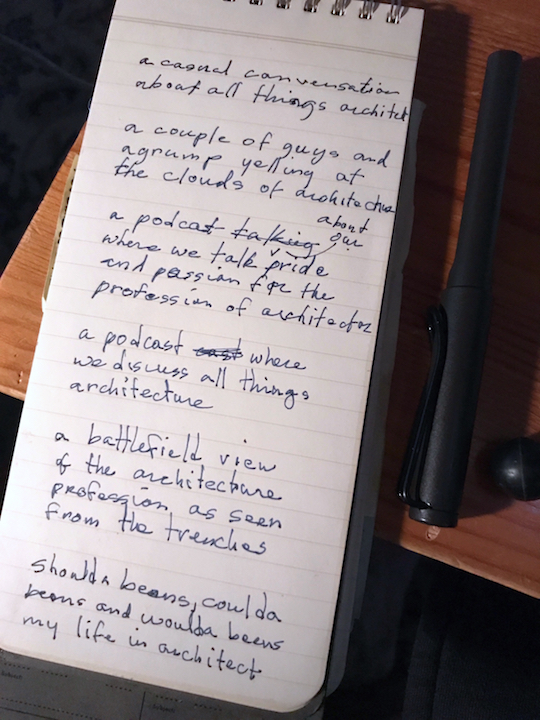 a casual conversation
about all things architect
a couple of guys and
a grump yelling at
the clouds of architecture
about
a podcast talking our
where we talk pride
and passion for the
profession of architector
a podcast cast where
we discuss all things
architecture
a battlefield view
of the architecture
profession as seen
from the trenches
shoulda beens, coulda
beens and woulda beens
my life in architect